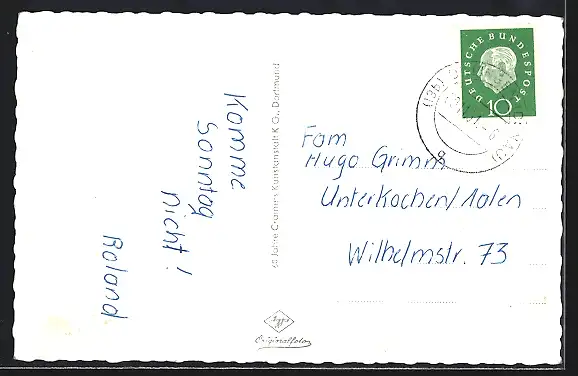 Komme
Sonntag
nicht!
Roland
60 Jahre Cramers Kunstanstalt KG., Dortmund
Fam
Hugo Grimm
Unterkochen/Aalen
Wilhelmstr. 73
DEUTSCHE BUNDESPOST
10
Agfa
Originalfoto